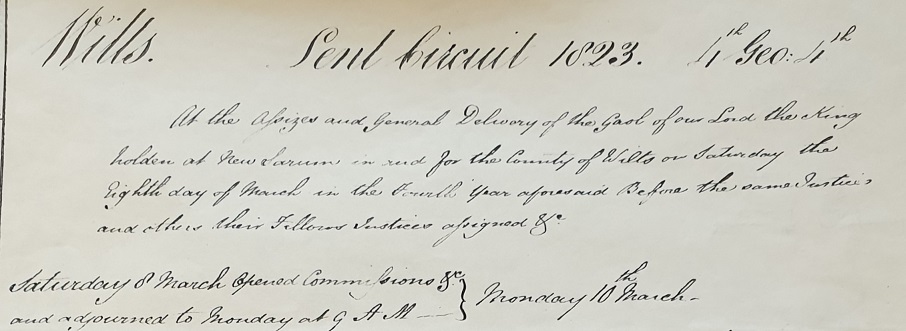 Wilts. Lent Circuit 1823. 4th Geo: 4th
At the Assizes and General Delivery of the Gaol of our Lord the King
holden at New Sarum in and for the County of Wilts on Saturday the
Eighth day of March in the Fourth Year aforesaid Before the same Justices
and others their Fellows Justices assigned &c
Saturday 8 March Opened Commissions &c
and adjourned to Monday at 9 A M —
} Monday 10th March -